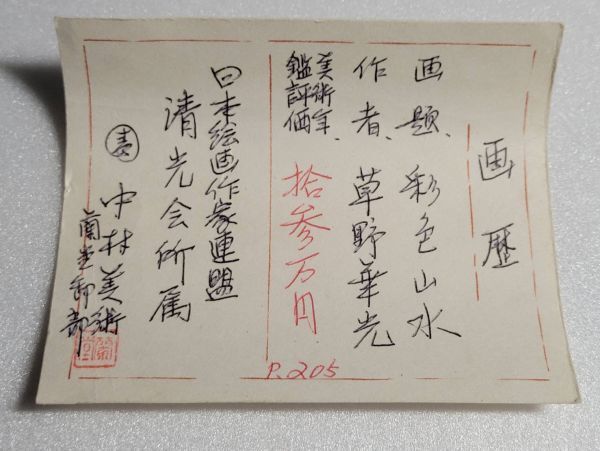 画歴
画題、彩色山水
作者、草野華光
美術年
鑑評価、拾参万円
日本絵画作家連盟
清光会所属
中村美術
商
卸部
P.205